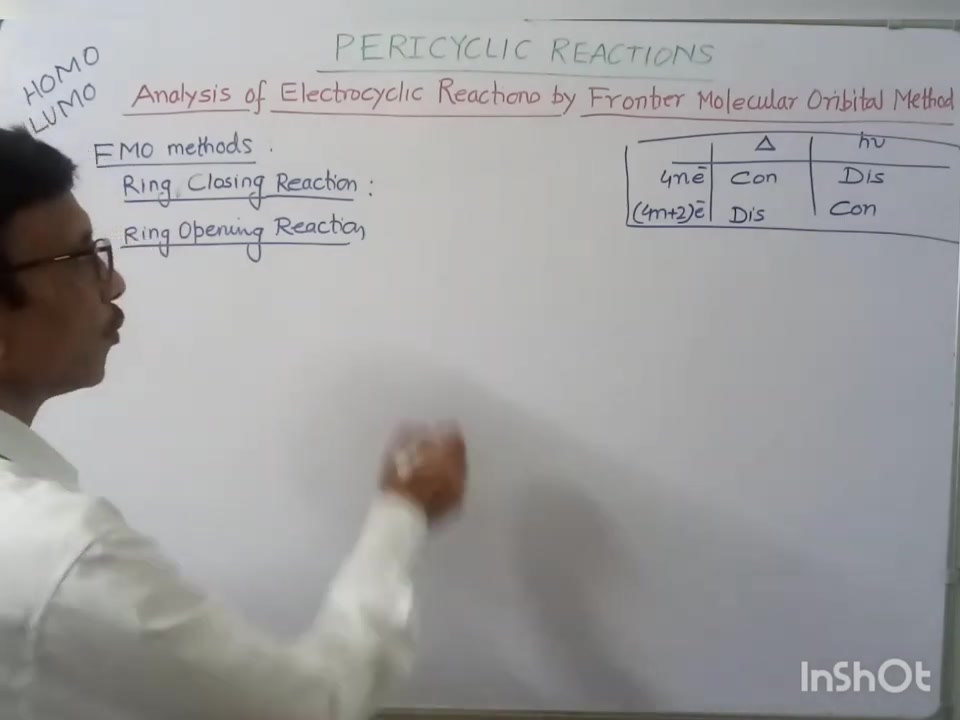 PERICYCLIC REACTIONS
HOMO
LUMO
Analysis of Electrocyclic Reactions by Frontier Molecular Oribital Method
FMO methods :
Ring Closing Reaction :
Ring Opening Reaction
Δ hν
4nē Con Dis
(4n+2)ē Dis Con
InShOt